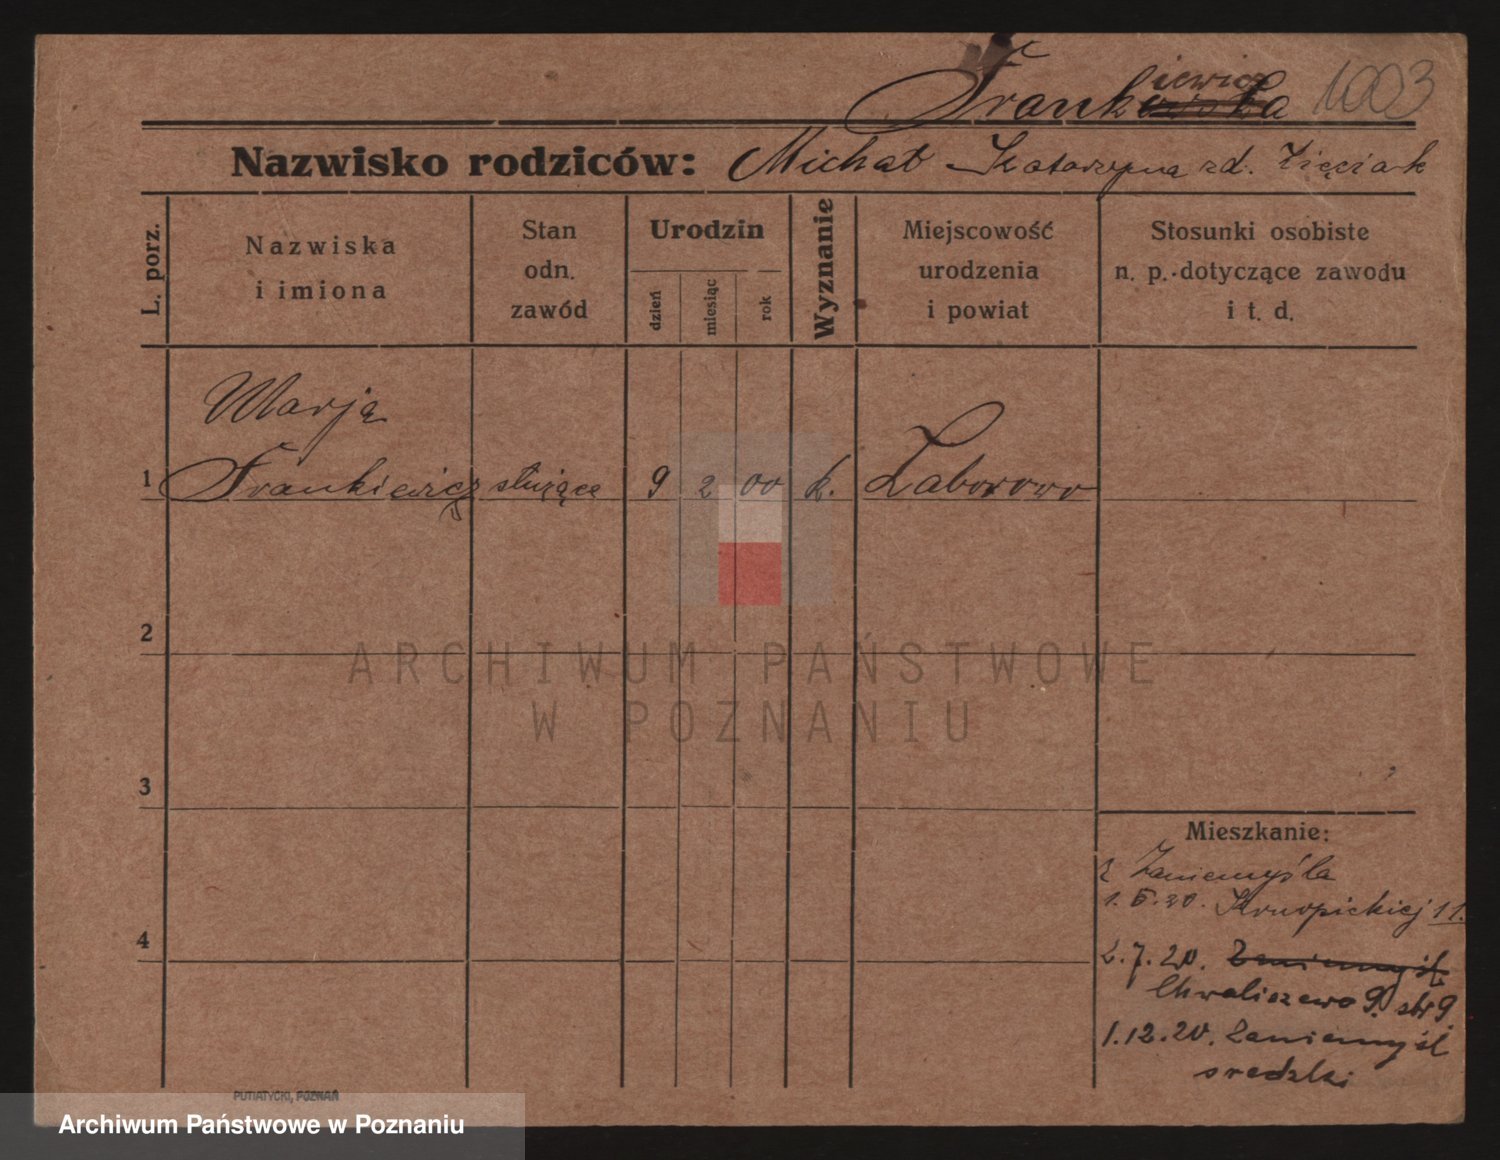 Frankiewicz 1003
Nazwisko rodziców: Michał Katarzyna zd. Zięciak
L. porz.
Nazwiska
i imiona
Stan
odn.
zawód
Urodzin
dzień
miesiąc
rok
Wyznanie
Miejscowość
urodzenia
i powiat
Stosunki osobiste
n. p. dotyczące zawodu
i t. d.
Marja
1 Frankiewicz służąca 9 2 00 k. Zaborowo
2
ARCHIWUM PAŃSTWOWE
W POZNANIU
3
Mieszkanie:
z Zaniemyśla
1. 5. 20. Konopickiej 11.
4
2. 7. 20. Zaniemyśl
Chwaliszewo 9. 
1. 12. 20. Zaniemyśl
sredzki
PUTIATYCKI, POZNAŃ
Archiwum Państwowe w Poznaniu